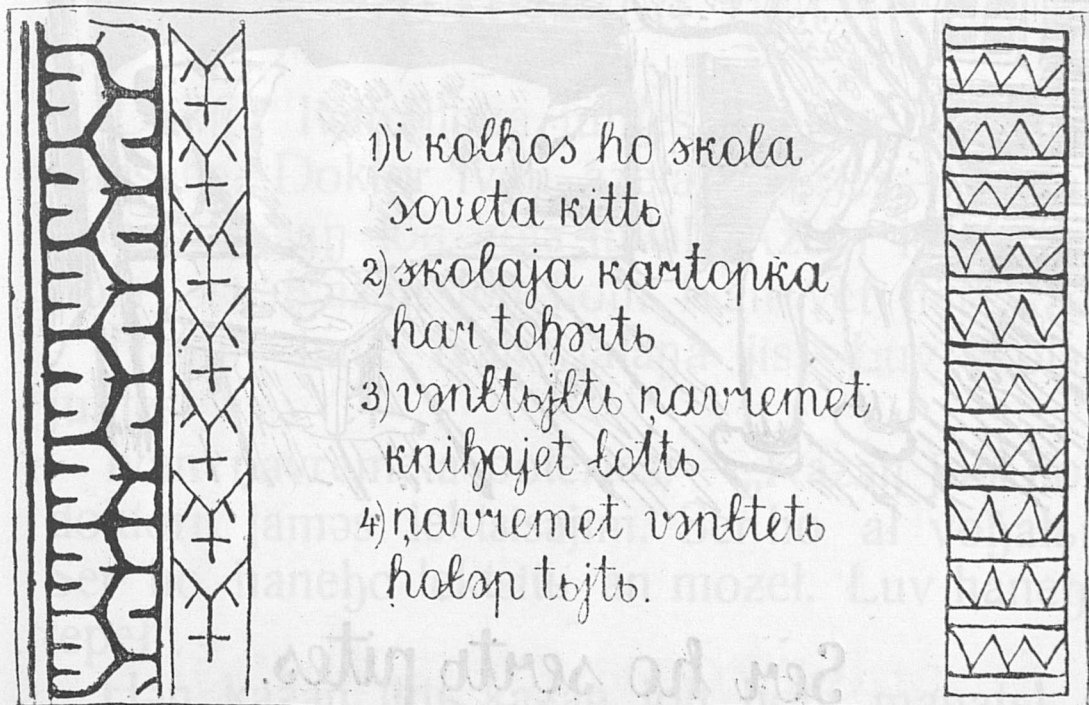 1) i kolhos ho skola
soveta kittь
2) skolaja kartopka
har toꜧərtь
3) vənłtьjłtь ņavremet
kniꜧajet łołtь
4) ņavremet vənłtetь
hołəp tьjtь.